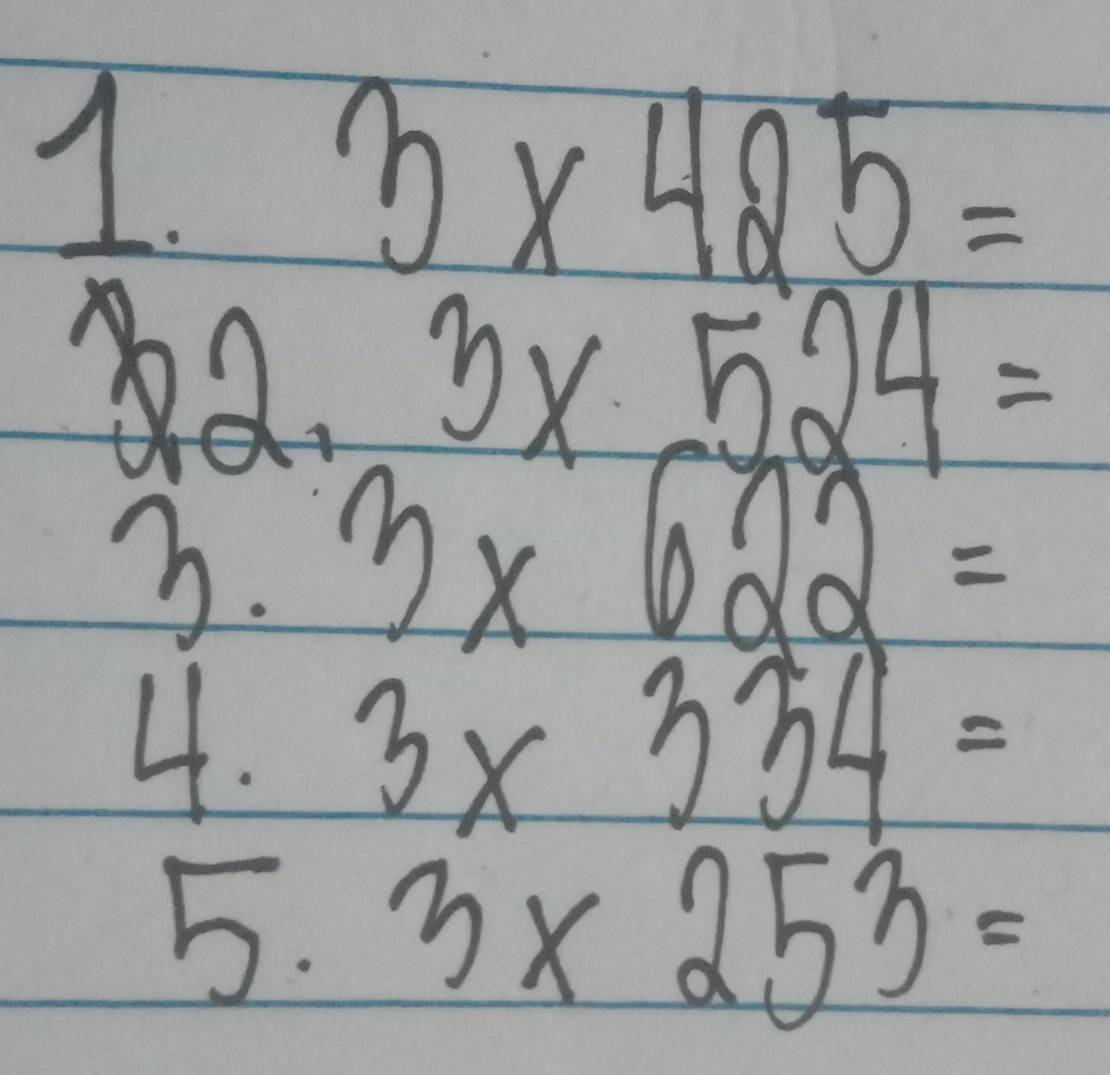 1. 3 x 425 =
2. 3 x 524 =
3. 3 x 622 =
4. 3 x 334 =
5. 3 x 253 =